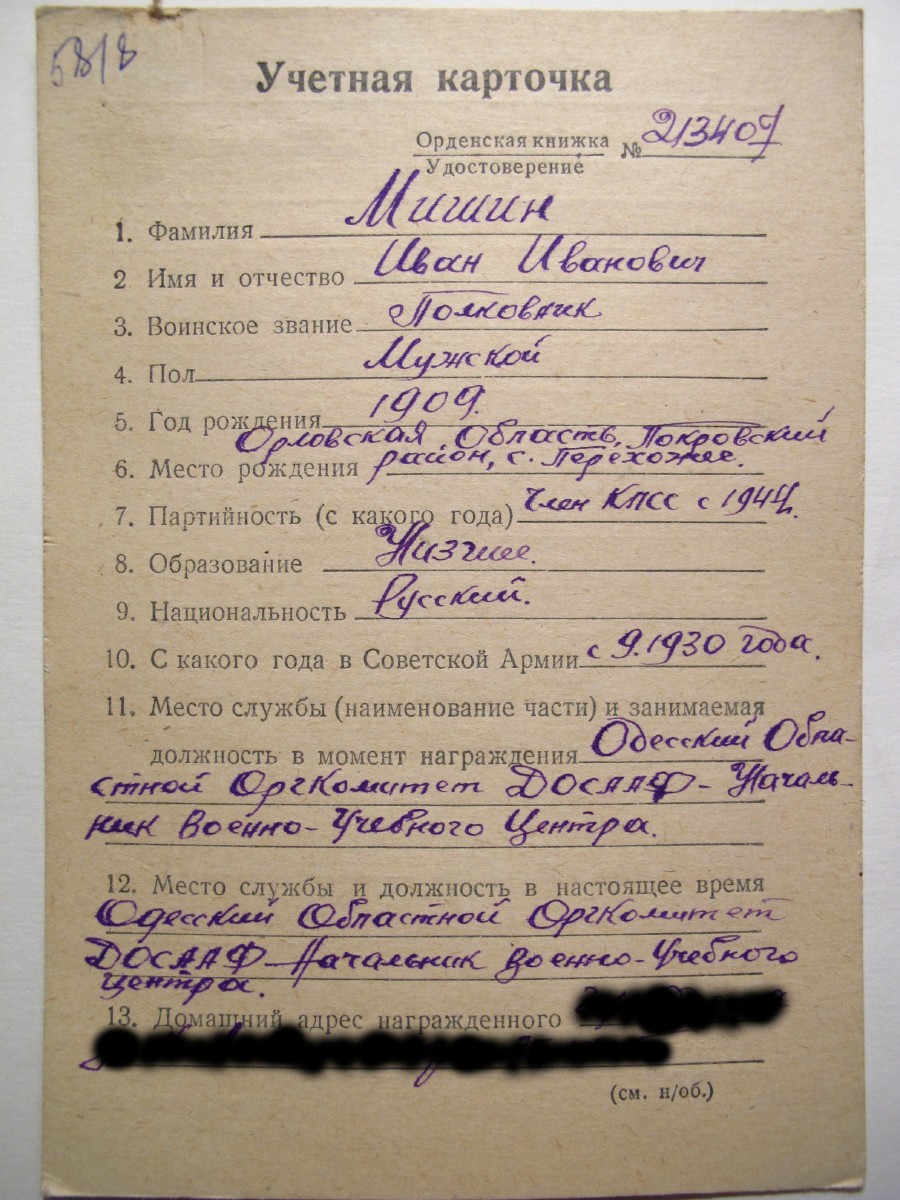 58/8
Учетная карточка
Орденская книжка
Удостоверение
№ 213407
1. Фамилия Мишин
2 Имя и отчество Иван Иванович
3. Воинское звание Полковник
4. Пол Мужской
5. Год рождения 1909.
Орловская Область, Покровский
6. Место рождения район, с. Перехожее.
7. Партийность (с какого года) Член КПСС с 1944.
8. Образование Низшее.
9. Национальность Русский.
10. С какого года в Советской Армии с 9.1930 года.
11. Место службы (наименование части) и занимаемая
должность в момент награждения Одесский Обла-
стной ОргКомитет ДОСААФ - Началь-
ник Военно-Учебного Центра.
12. Место службы и должность в настоящее время
Одесский Областной ОргКомитет
ДОСААФ - Начальник Военно-Учебного
Центра.
13. Домашний адрес награжденного
(см. н/об.)